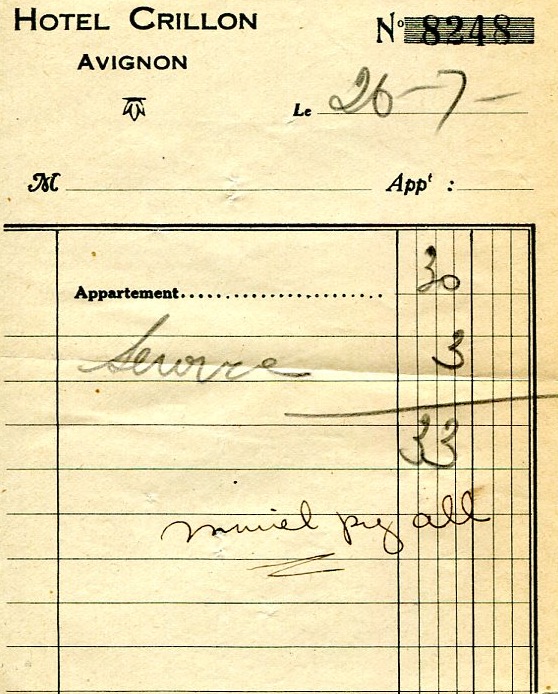 HOTEL CRILLON
AVIGNON
Nº 8248
Le 26-7-
M
Appt :
Appartement........................ 30
Service 3
33
muriel pay all